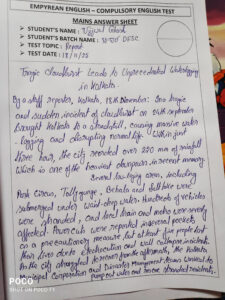 EMPYREAN ENGLISH – COMPULSORY ENGLISH TEST
MAINS ANSWER SHEET
STUDENT'S NAME :
STUDENT'S BATCH NAME :
TEST TOPIC : Report
TEST DATE : 18/11/25
Tragic cloudburst Leads to Unprecedented Waterlogging
in Kolkata
By a staff reporter, Kolkata, 18th November: In a tragic
and sudden incident of cloudburst on 24th September
brought Kolkata to a standstill, causing massive water
-logging and disrupting normal life. Within just
three hour, the city recorded over 220 mm of rainfall
Which is one of the heaviest downpour in recent memory.
Several low-lying area, including
Park Circus, Tollygunge, Behala and Salt lake were
submerged under waist-deep water. Hundreds of vehicles
were stranded, and local train and metro were severely
affected. Power cuts were reported in several pockets
as a precautionary measure but at least five people lost
their lives due to electrocution and wall collapse incidents.
As the city struggled to recover from the aftermath, the Kolkata
Municipal Corporation and Disaster Management teams worked to
pump out water and rescue stranded residents.
POCO
SHOT ON POCO